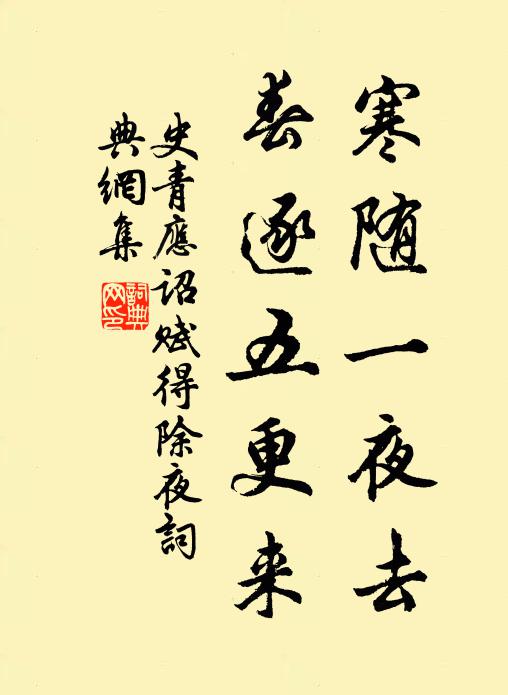 寒随一夜去
春逐五更来
史青應詔賦得除夜詞
典網集
詞典网印